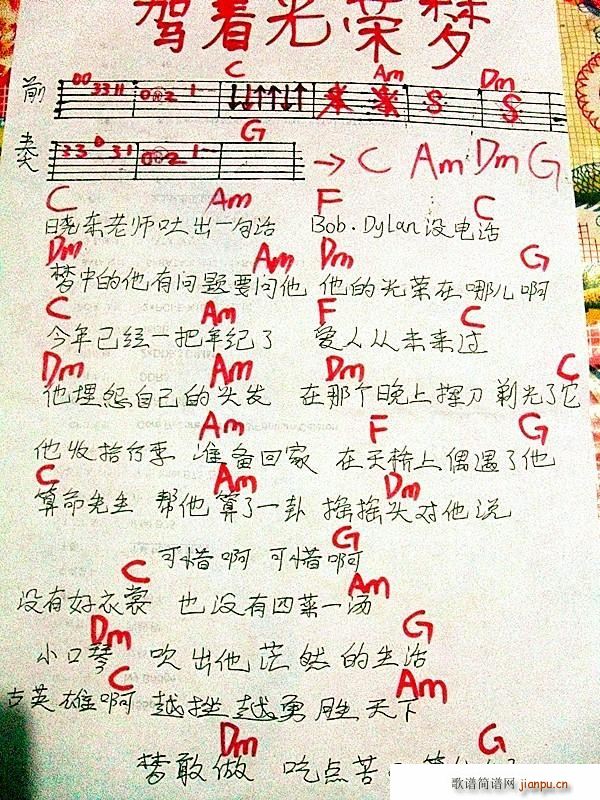 驾着光荣梦
前 00 3311 002 1-- C Am Dm
奏 33 0 31 002 1-- G → C Am Dm G
C Am F C
晓东老师吐出一句话 Bob.Dylan没电话
Dm Am Dm G
梦中的他有问题要问他 他的光荣在哪儿啊
C Am F C
今年已经一把年纪了 爱人从未来过
Dm Am Dm C
他埋怨自己的头发 在那个晚上挥刀剃光了它
Am F G
他收拾行李 准备回家 在天桥上偶遇了他
C Am Dm
算命先生 帮他算了一卦 摇摇头对他说
G
可惜啊 可惜啊
C Am
没有好衣裳 也没有四菜一汤
Dm G
小口琴 吹出他茫然的生活
C Am
古英雄啊 越挫越勇胜天下
Dm G
梦敢做 吃点苦
歌谱简谱网 jianpu.cn